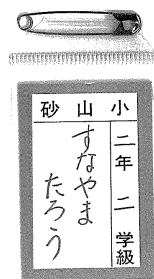 砂山小
二年 二 学級
すなやま
たろう